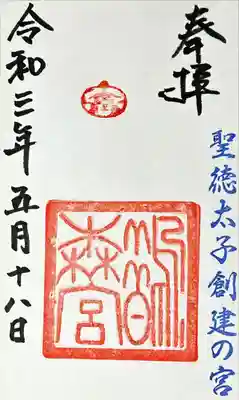 奉拝
聖徳太子創建の宮
鵲森宮
令和三年五月十八日